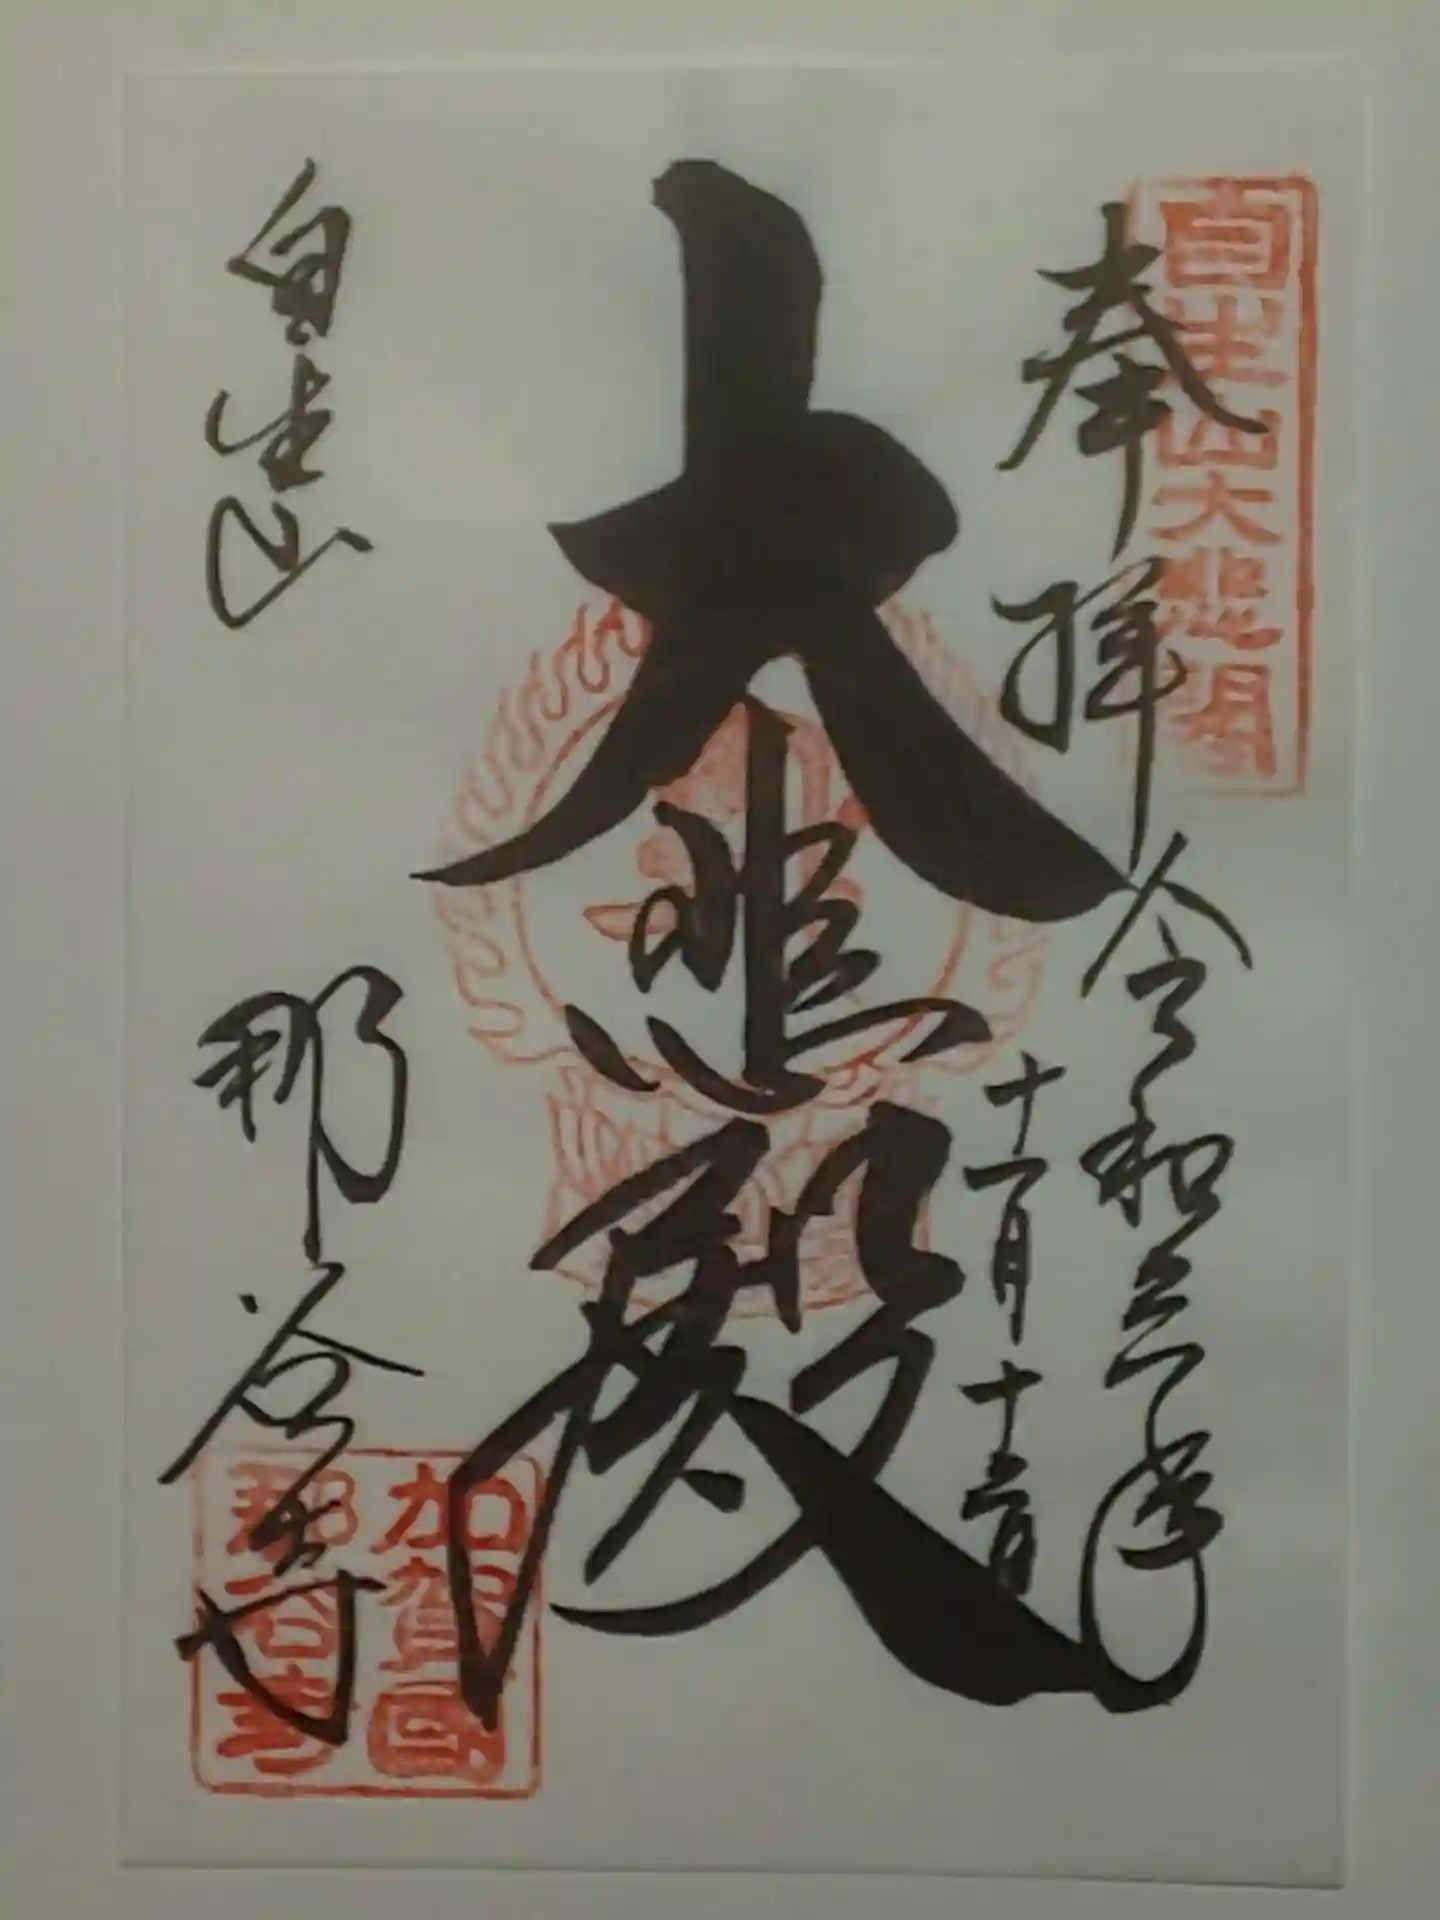 奉拝
白生山大悲閣
令和三年
十一月十三日
大悲殿
自生山
那谷寺
加賀國
那谷寺